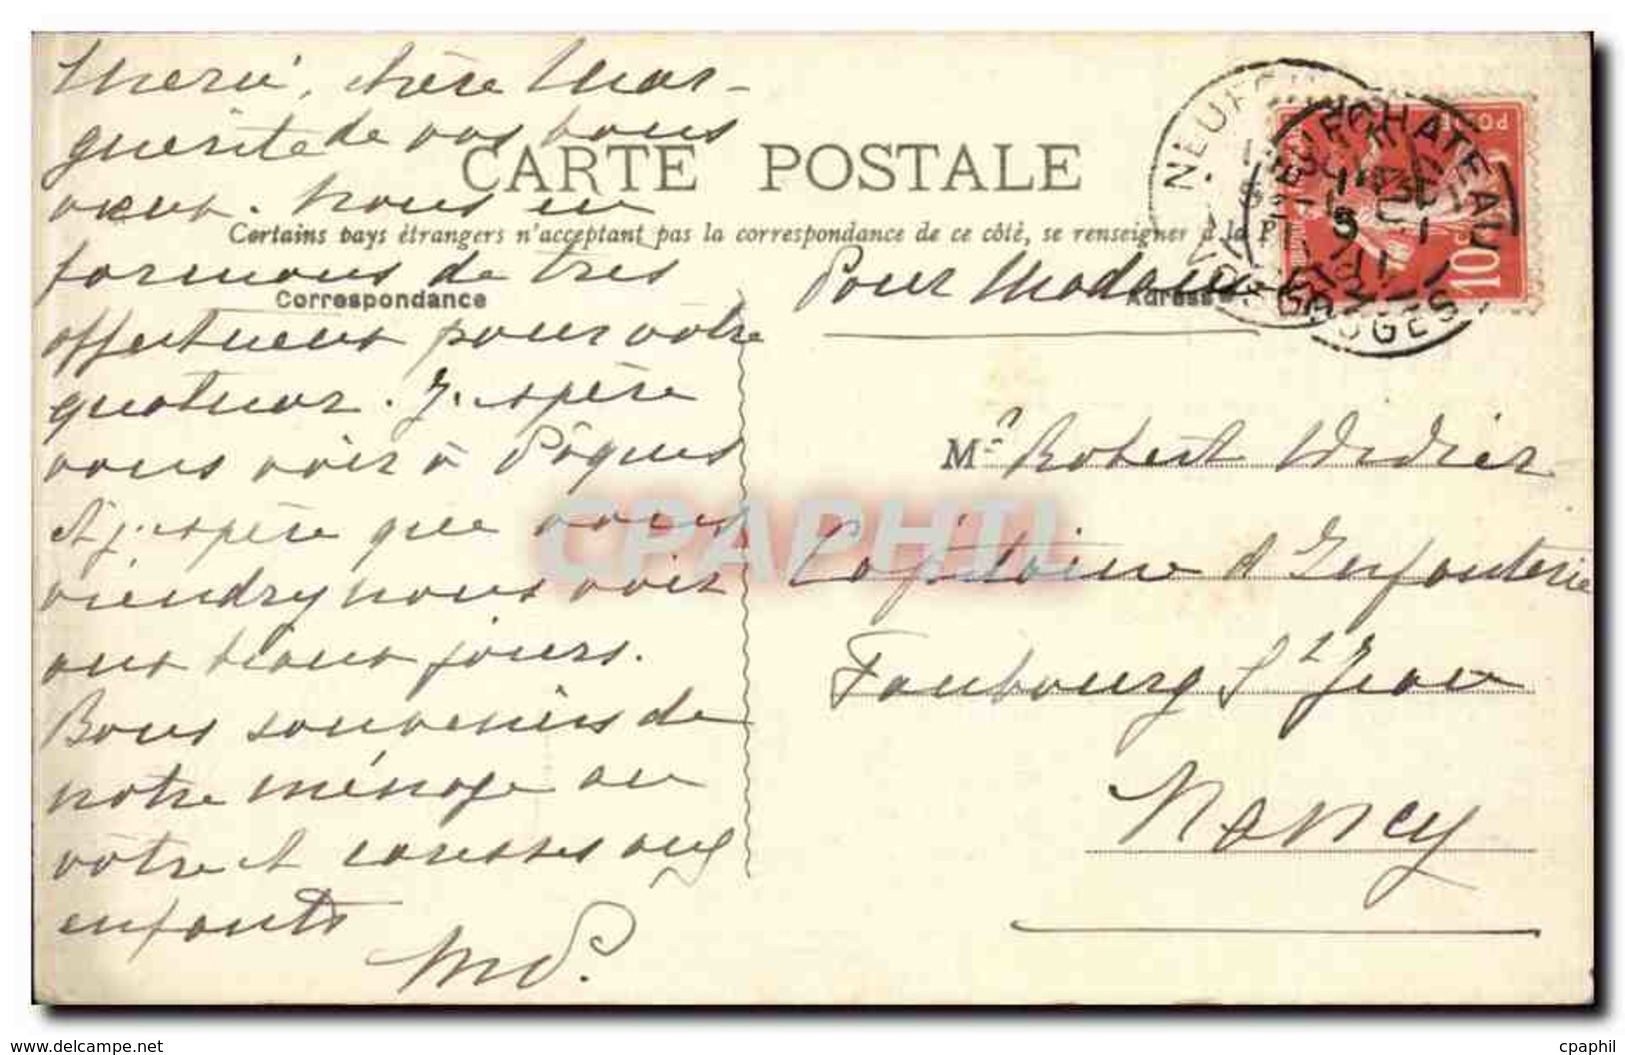 Merci, chère Mar-
guerite de vos bons
vœux. Nous en
formons de très
affectueux pour votre
quatuor. J'espère
vous voir à Pâques
et j'espère que vous
viendrez nous voir
aux beaux jours.
Bons souvenirs de
notre ménage au
vôtre et caresses aux
enfants
MP.
CARTE POSTALE
Certains pays étrangers n'acceptant pas la correspondance de ce côté, se renseigner à la
Correspondance
Adresse
Pour Madame
M.r Robert Didier
Capitaine d'Infanterie
Faubourg St Jean
Nancy
NEUFCHATEAU
VOSGES
POSTE
10c
CPAPHIL
www.delcampe.net
cpaphil